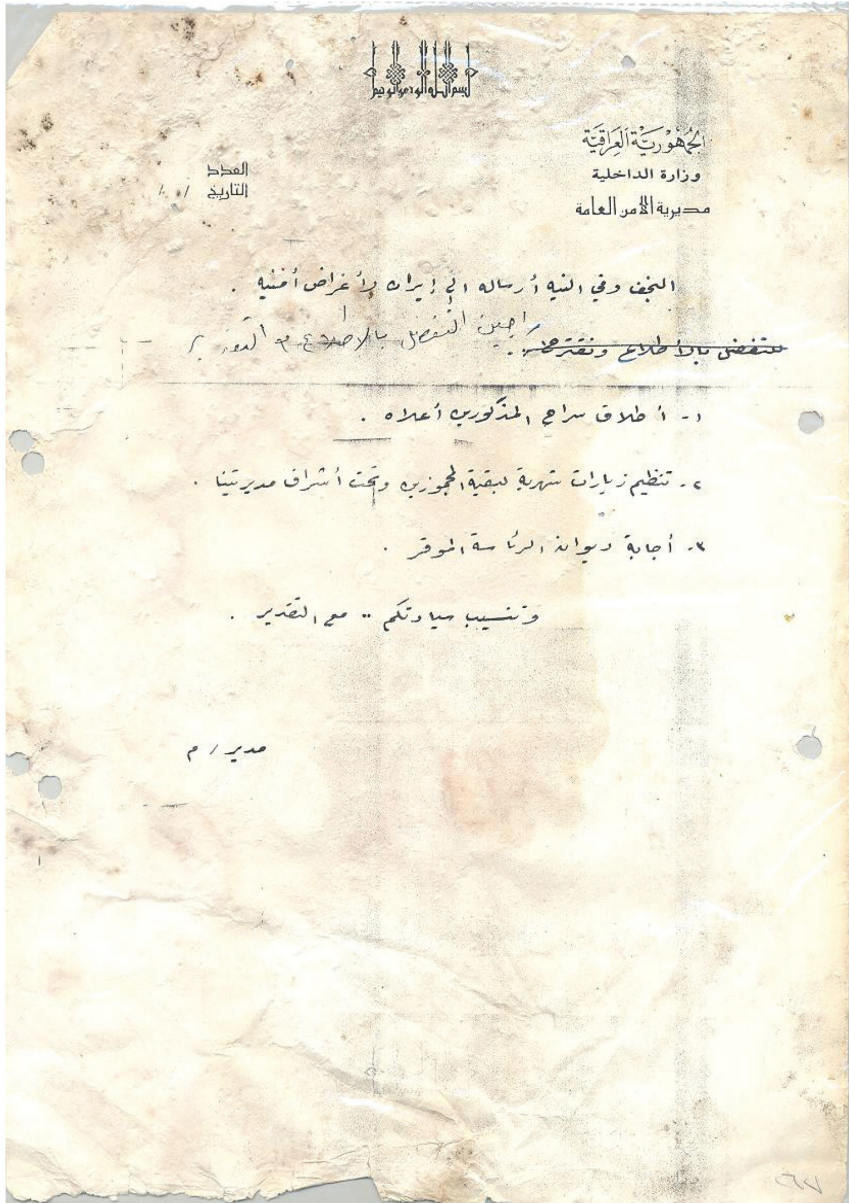 بسم الله الرحمن الرحيم
الجمهورية العراقية
وزارة الداخلية
مديرية الأمن العامة
العدد
التاريخ / /
النجف وفي النيه أرساله الى إيران ولأغراض أمنيه .
راجين التفضل بالاطلاع
للتفضل بالأطلاع ونقترح :.
١- أطلاق سراح المذكورين أعلاه .
٢- تنظيم زيارات شهرية لبقية المحجوزين وتحت أشراف مديرتينا .
٣- أجابة ديوان الرئاسة الموقر .
وتنسيب سيادتكم .. مع التقدير .
مدير / م